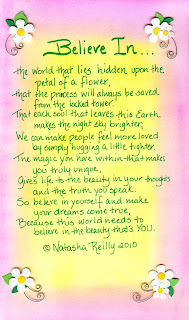 Believe In...
the world that lies hidden upon the
petal of a flower,
that the princess will always be saved
from the locked tower.
That each soul that leaves this Earth
makes the night sky brighter;
We can make people feel more loved
by simply hugging a little tighter.
The magic you have within that makes
you truly unique,
Gives life to the beauty in your thoughts
and the truth you speak.
So believe in yourself and make
your dreams come true,
Because this world needs to
believe in the beauty that's YOU.
© Natasha Reilly 2010